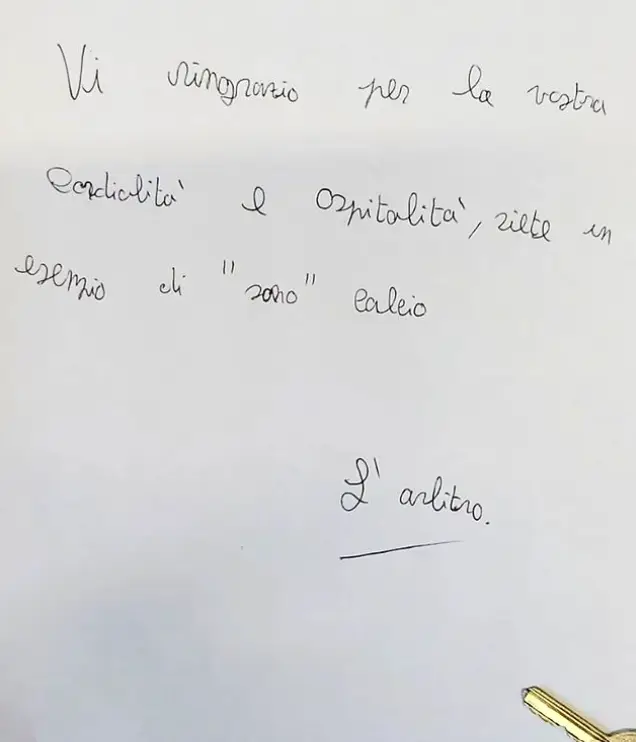 Vi ringrazio per la vostra
cordialità e ospitalità, siete un
esempio di "sano" calcio
L'arbitro.